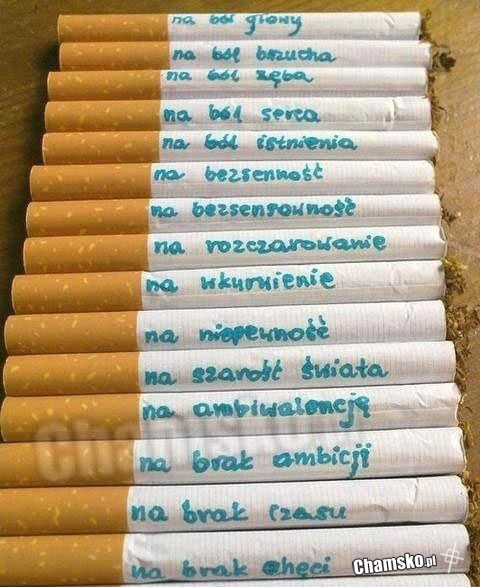 na ból głowy
na ból brzucha
na ból zęba
na ból serca
na ból istnienia
na bezsenność
na bezsensowność
na rozczarowanie
na wkurwienie
na niepewność
na szarość świata
na ambiwalencję
na brak ambicji
na brak czasu
na brak chęci
Chamsko.pl